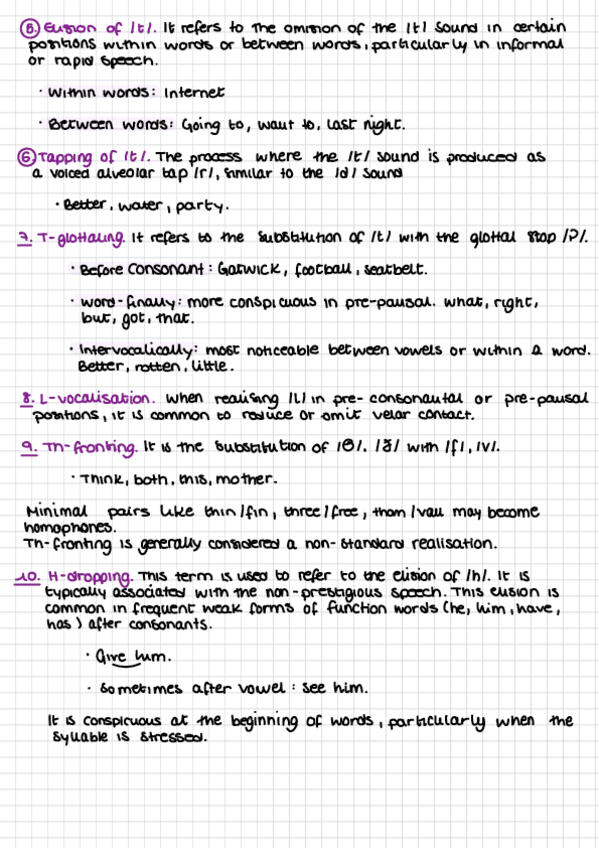 5. Elision of /t/. It refers to the omision of the /t/ sound in certain
positions within words or between words, particularly in informal
or rapid speech.
· Within words: Internet
· Between words: Going to, want to, last night.
6 Tapping of /t/. The process where the /t/ sound is produced as
a voiced alveolar tap /ɾ/, similar to the /d/ sound
· Better, water, party.
7. T-glottaling. It refers to the substitution of /t/ with the glottal stop /ʔ/.
· Before consonant: Gatwick, football, seatbelt.
· word-finally: more conspicuous in pre-pausal. what, right,
but, got, that.
· Intervocalically: most noticeable between vowels or within a word.
Better, rotten, little.
8. L-vocalisation. When realising /l/ in pre-consonantal or pre-pausal
positions, it is common to reduce or omit velar contact.
9. Th-fronting. It is the substitution of /θ/. /ð/ with /f/, /v/.
· Think, both, this, mother.
Minimal pairs like thin/fin, three/free, than/van may become
homophones.
Th-fronting is generally considered a non-standard realisation.
10. H-dropping. This term is used to refer to the elision of /h/. It is
typically associated with the non-prestigious speech. This elision is
common in frequent weak forms of function words (he, him, have,
has) after consonants.
· Give him.
· Sometimes after vowel: see him.
It is conspicuous at the beginning of words, particularly when the
syllable is stressed.